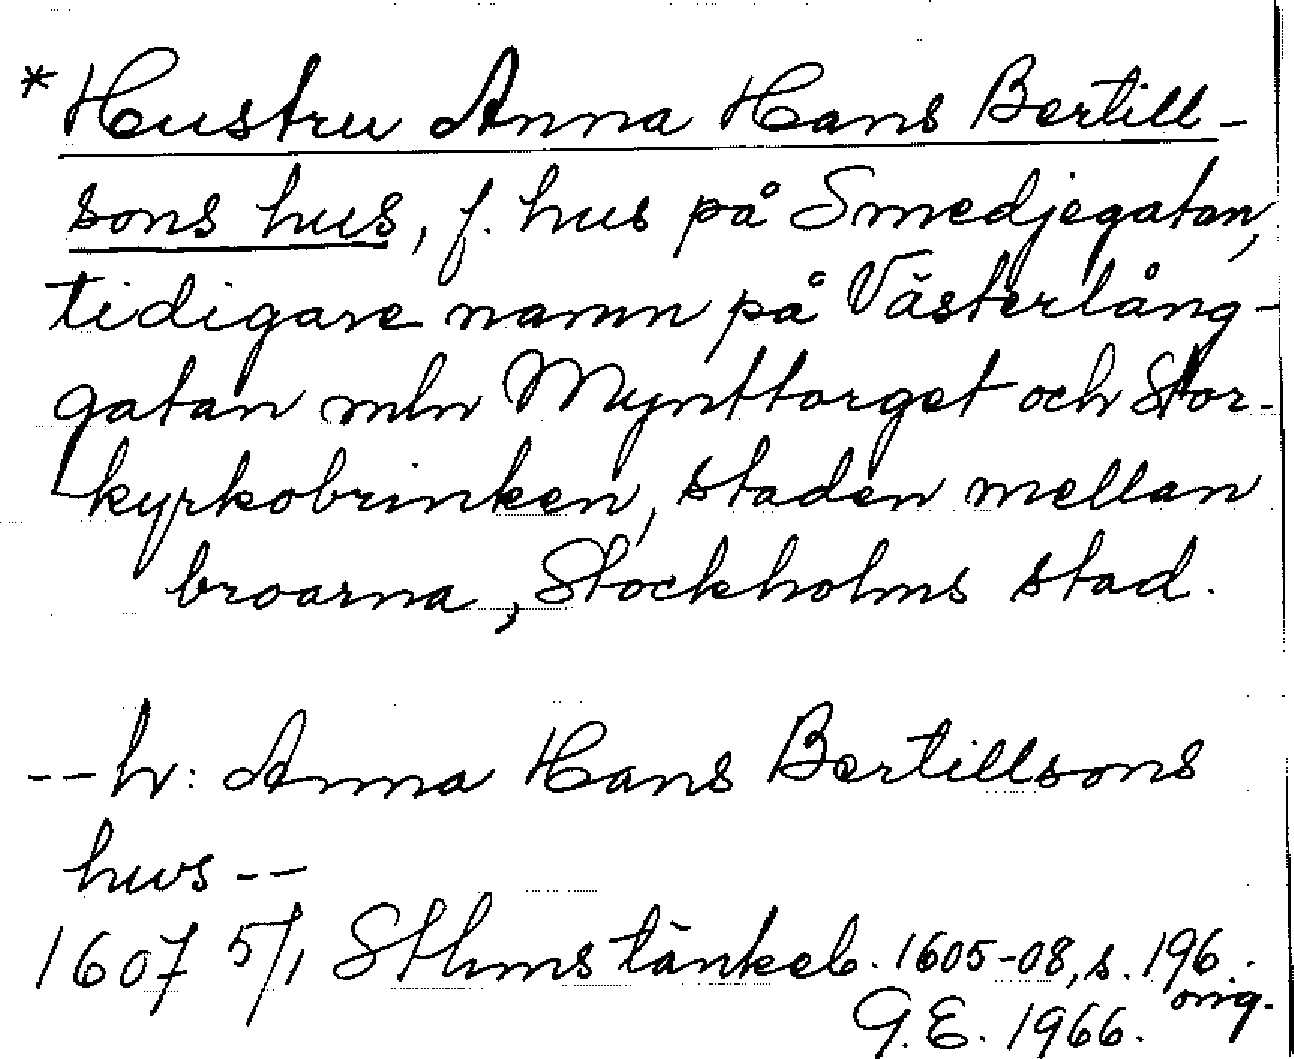 * Hustru Anna Hans Bertill-
sons hus, f. hus på Smedjegatan,
tidigare namn på Västerlång-
gatan mln Mynttorget och Stor-
kyrkobrinken, staden mellan
broarna, Stockholms stad.
-- h: Anna Hans Bertillsons
hws --
1607 5/1 Sthms tänkeb. 1605-08, s. 196.
orig.
G.E. 1966.